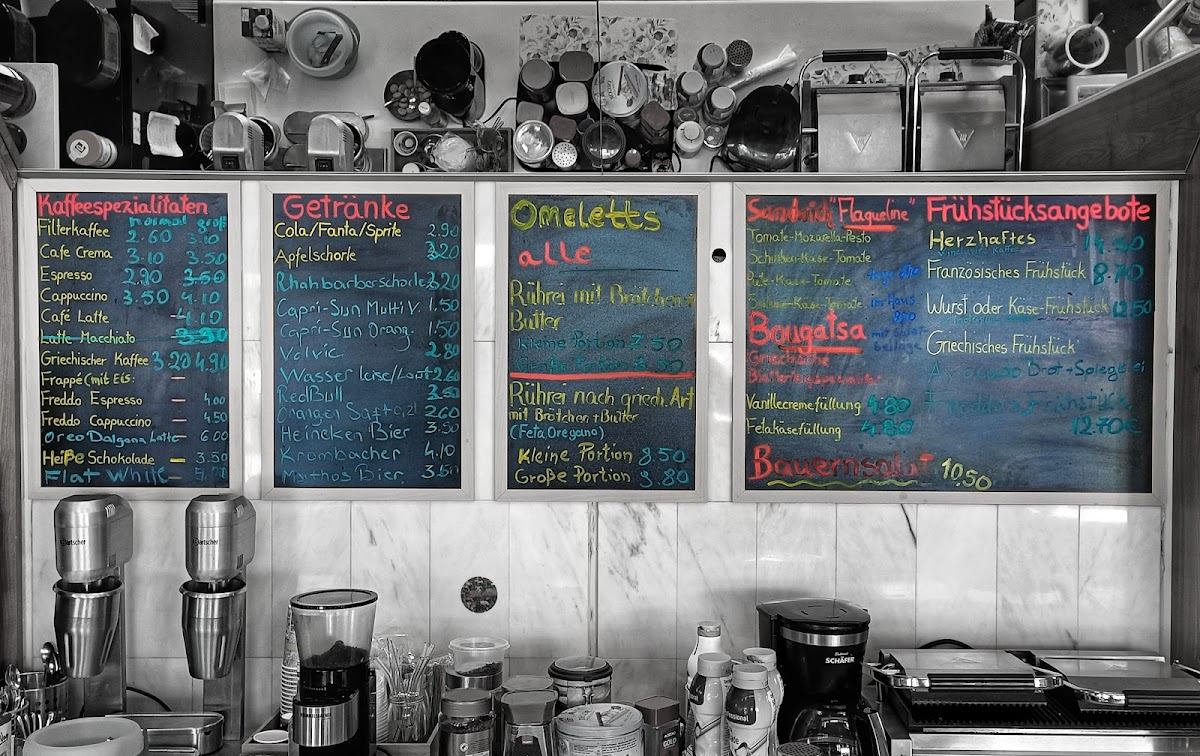 Kaffeespezialitäten
normal groß
Filterkaffee 2.60 3.10
Cafe Crema 3.10 3.50
Espresso 2.90 3.50
Cappuccino 3.50 4.10
Café Latte 4.10
Latte Macchiato
Griechischer Kaffee 3.20 4.90
Frappé (mit Eis:
Freddo Espresso 4.00
Freddo Cappuccino 4.50
Oreo Dalgona Latte 6.00
Heiße Schokolade 3.50
Flat White
Getränke
Cola/Fanta/Sprite 2.90
Apfelschorle 3.20
Rhahbarberschorle 3.20
Capri-Sun Multi V. 1.50
Capri-Sun Orang. 1.50
Volvic 2.80
Wasser leise/Laut 2.60
RedBull 3.50
Orangen Saft 0,2l 2.60
Heineken Bier 3.90
Krombacher 4.10
Mythos Bier 3.50
Omeletts
alle
Rührei mit Brötchen
Butter
Kleine Portion 7.50
Rührei nach griech. Art
mit Brötchen + Butter
(Feta, Oregano)
Kleine Portion 8.50
Große Portion 9.80
Sandwich "Flaqueline"
Tomate-Mozarella-Pesto
Schinken-Käse-Tomate
Pute-Käse-Tomate
Salami-Käse-Tomate im Haus
Bougatsa
mit Salat
beilage
Griechische
Vanillecremefüllung 4.80
Fetakäsefüllung 4.80
Bauernsalat 10,50
Frühstücksangebote
Herzhaftes 14.50
Französisches Frühstück 8.70
Wurst oder Käse-Frühstück 12.50
Griechisches Frühstück
Avocado Brot + Spiegelei
12.70€
Bartscher
SCHÄFER